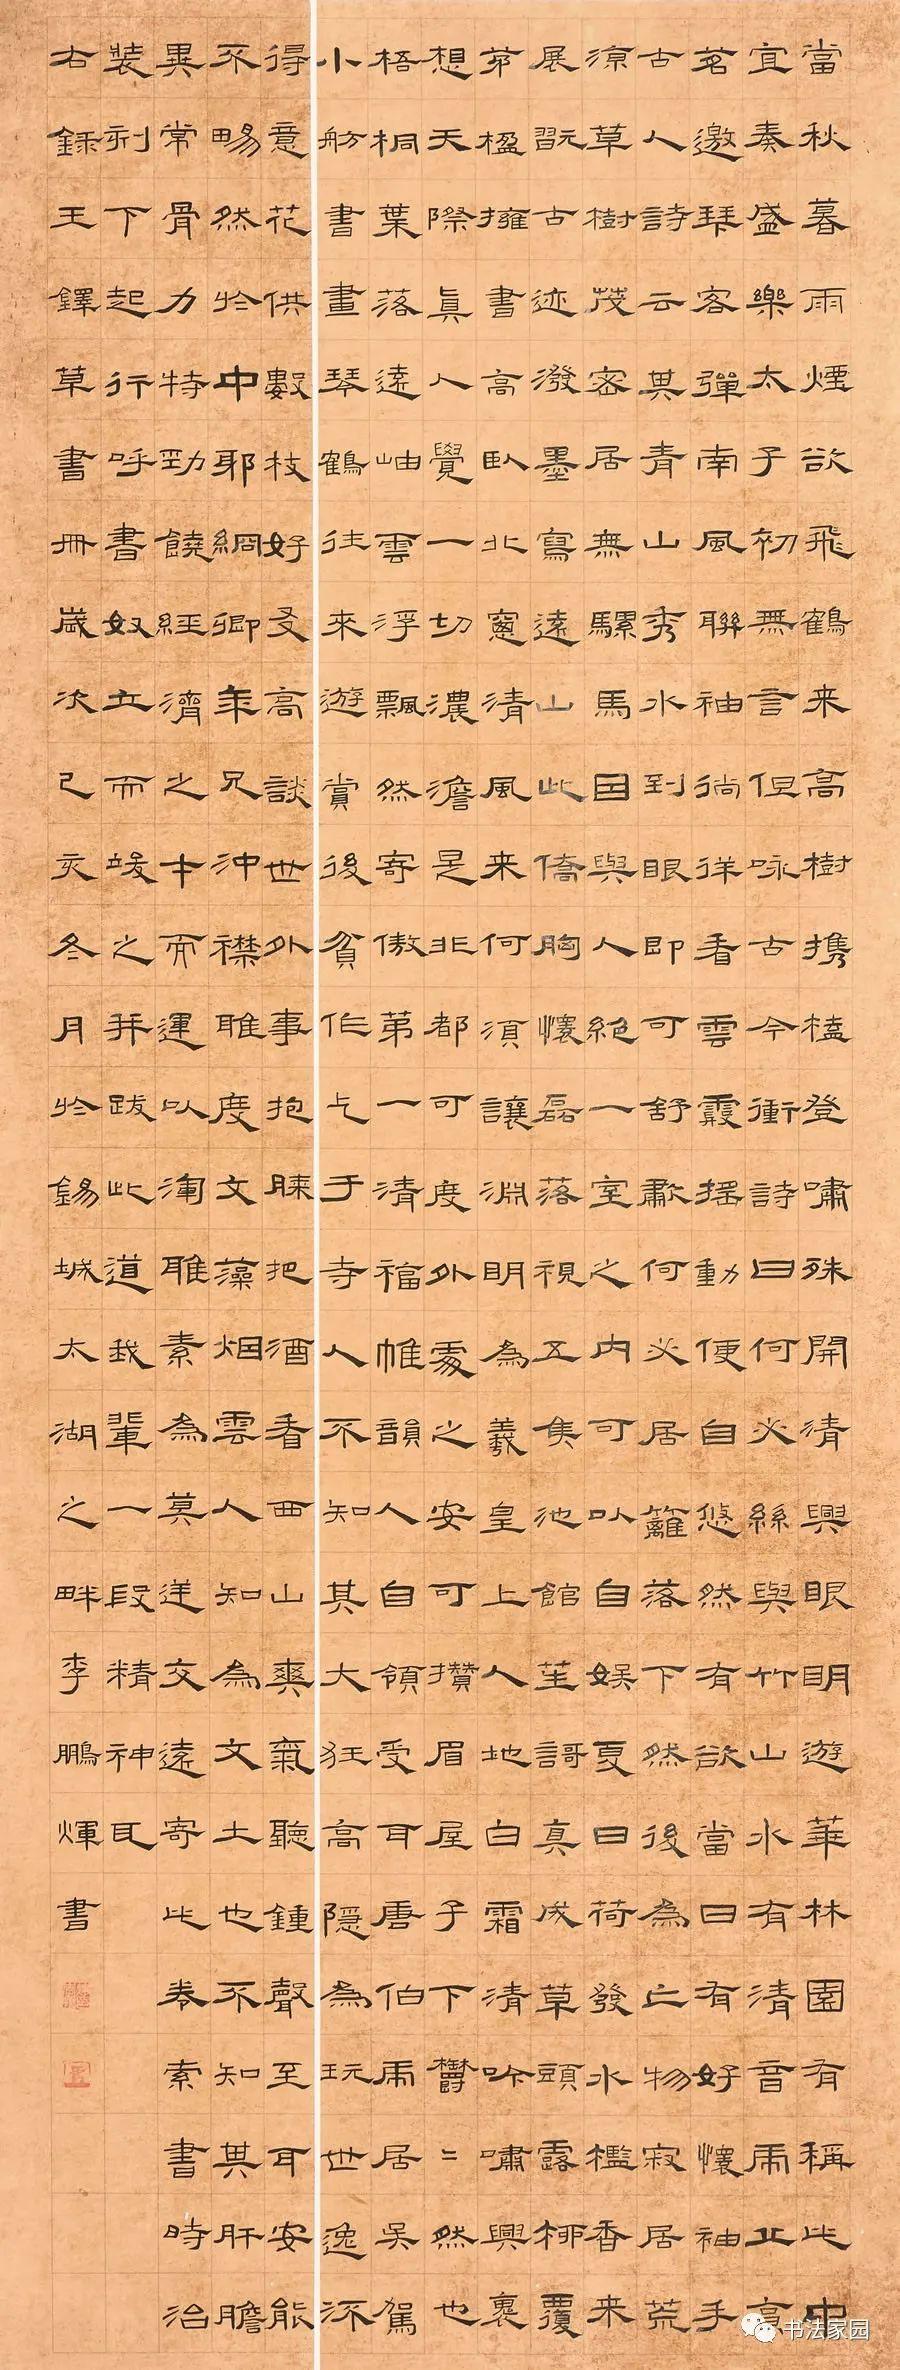 當秋暮雨煙欲飛鶴来高樹携榼登嘯殊開清興眼明遊華林園有稱此中
宜奏盛樂太子初無言但咏古今衝詩曰何必絲與竹山水有清音雨止亭
茗邀琴客彈南風聯袖徜徉看雲霞揺動便自悠然有欲當日有好懷袖手
古人詩云其青山秀水到眼即可舒歗何必居籬落下然後為亡物寂居荒
涼草樹茂密居無騾馬目與人絕一室之内可以自娱夏日荷發水檻香来
展翫古迹潑墨寫遠山此僑胸懷磊落視五隻池館茎謌真成草頭露栁覆
茆楹擁書高臥北窻清風来何須讓淵明為羲皇上人地白霜清吟嘯興裏
想天際真人覺一切濃澹是非都可度外處之安可攢眉屋子下欝〻然也
梧桐葉落遠岫雲浮飄然寄傲第一清福惟韻人自領受耳唐伯虎居吴駕
小舫書畫琴鶴往来遊賞後貧作乞于寺人不知其大狂高隱為玩世逸流
得意花供數枝好友高談世外事抱膝把酒看西山爽氣聽鍾聲至耳安能
不暢然於中耶絅卿年兄沖襟雅度文藻烟雲人知為文士也不知其肝膽
異常骨力特勁饒經濟之本而運以淘雅素為莫逆交遠寄此卷索書時治
裝刺下起行呼書奴立而竢之并跋此道我輩一段精神耳
右錄王鐸草書冊歲次己亥冬月於錫城太湖之畔李鵬煇書
书法家园